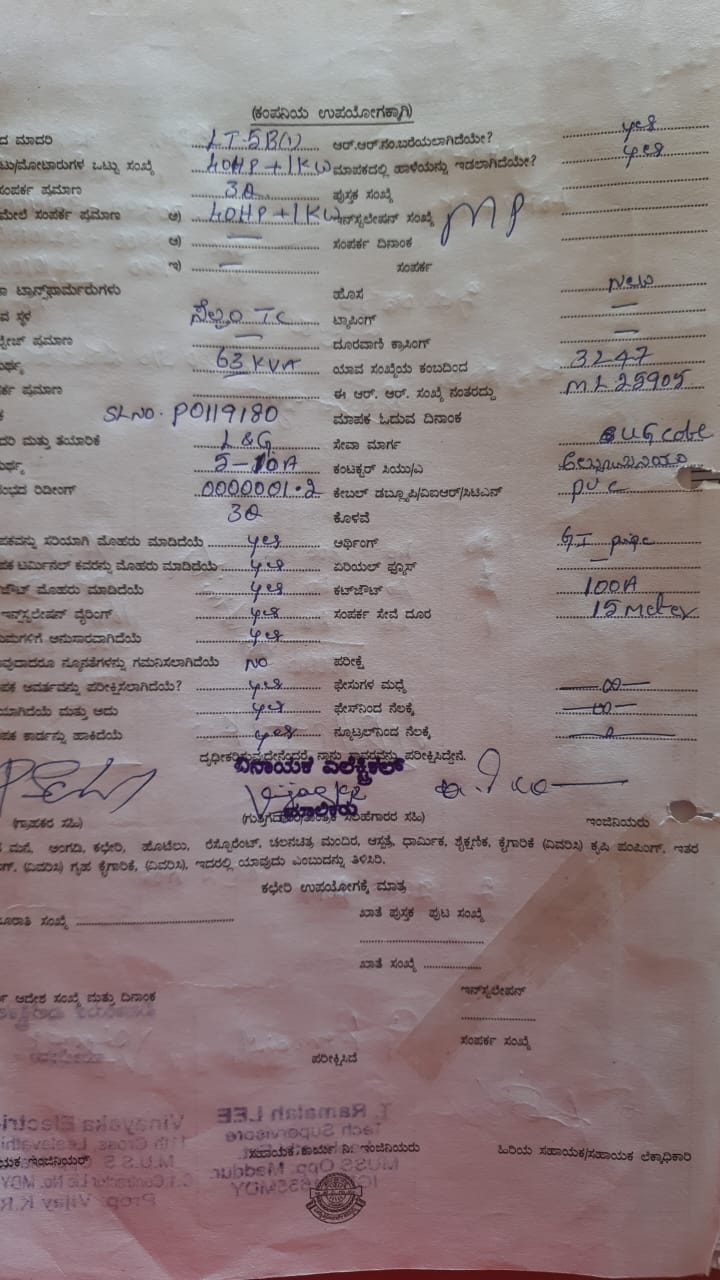 (ಕಂಪನಿಯ ಉಪಯೋಗಕ್ಕಾಗಿ)
ದ ಮಾದರಿ LT-5B(1) ಆರ್.ಆರ್.ನಂ.ಬರೆಯಲಾಗಿದೆಯೇ? yes
ಟು/ಮೋಟಾರುಗಳ ಒಟ್ಟು ಸಂಖ್ಯೆ 40HP+1KW ಮಾಪಕದಲ್ಲಿ ಹಾಳೆಯನ್ನು ಇಡಲಾಗಿದೆಯೇ? yes
ಸಂಪರ್ಕ ಪ್ರಮಾಣ 3Θ ಪುಸ್ತಕ ಸಂಖ್ಯೆ
ಮೇಲೆ ಸಂಪರ್ಕ ಪ್ರಮಾಣ ಅ) 40HP+1KW ಇನ್‌ಸ್ಟಲೇಷನ್ ಸಂಖ್ಯೆ MP
ಆ) — ಸಂಪರ್ಕ ದಿನಾಂಕ
ಇ) — ಸಂಪರ್ಕ
ಟ್ರಾನ್ಸ್‌ಫಾರ್ಮರುಗಳು ಹೊಸ New
ವ ಸ್ಥಳ TC ಟ್ಯಾಪಿಂಗ್ —
ಪ್ರಮಾಣ — ದೂರವಾಣಿ ಕ್ರಾಸಿಂಗ್ —
63 KVA ಯಾವ ಸಂಖ್ಯೆಯ ಕಂಬದಿಂದ 3247
ರ್ಕ ಪ್ರಮಾಣ ಈ ಆರ್. ಆರ್. ಸಂಖ್ಯೆ ನಂತರದ್ದು ML25905
SLNO. P0119180 ಮಾಪಕ ಓದುವ ದಿನಾಂಕ
ದರಿ ಮತ್ತು ತಯಾರಿಕೆ L&G ಸೇವಾ ಮಾರ್ಗ UG cable
5-10A ಕಂಟಕ್ಟರ್ ಸಿಯು/ಎ
ರೀಡಿಂಗ್ 0000001.2 ಕೇಬಲ್ ಡಬ್ಲ್ಯೂಪಿ/ವಿಐಆರ್/ಸಿಟಿಎಸ್ PVC
3Θ ಕೊಳವೆ
ಪಕವನ್ನು ಸರಿಯಾಗಿ ಮೊಹರು ಮಾಡಿದೆಯೆ yes ಆರ್ಥಿಂಗ್ GI pipe
ಪಕ ಟರ್ಮಿನಲ್ ಕವರನ್ನು ಮೊಹರು ಮಾಡಿದೆಯೆ yes ಏರಿಯಲ್ ಫ್ಯೂಸ್
ಜೌಟ್ ಮೊಹರು ಮಾಡಿದೆಯೆ yes ಕಟ್‌ಜೌಟ್ 100A
ಇನ್‌ಸ್ಟಲೇಷನ್ ವೈರಿಂಗ್ yes ಸಂಪರ್ಕ ಸೇವೆ ದೂರ 15 Meter
ಮಗಳಿಗೆ ಅನುಸಾರವಾಗಿದೆಯೆ yes
ವುದಾದರೂ ನ್ಯೂನತೆಗಳನ್ನು ಗಮನಿಸಲಾಗಿದೆಯೆ NO ಪರೀಕ್ಷೆ
ಪಕ ಆವರ್ತವನ್ನು ಪರೀಕ್ಷಿಸಲಾಗಿದೆಯೆ? yes ಫೇಸುಗಳ ಮಧ್ಯೆ ∞
ಯಾಗಿದೆಯೆ ಮತ್ತು ಅದು yes ಫೇಸ್‌ನಿಂದ ನೆಲಕ್ಕೆ ∞
ಪಕ ಕಾರ್ಡನ್ನು ಹಾಕಿದೆಯೆ yes ನ್ಯೂಟ್ರಲ್‌ನಿಂದ ನೆಲಕ್ಕೆ
ದೃಢೀಕರಿಸುವುದೇನೆಂದರೆ ನಾನು ಸ್ಥಾವರವನ್ನು ಪರೀಕ್ಷಿಸಿದ್ದೇನೆ.
ವಿನಾಯಕ ಎಲೆಕ್ಟ್ರಿಕಲ್
ಮಾಲೀಕರು
(ಗ್ರಾಹಕರ ಸಹಿ) ಇಂಜಿನಿಯರು
ಮನೆ, ಅಂಗಡಿ, ಕಛೇರಿ, ಹೊಟೆಲು, ರೆಸ್ಟೊರೆಂಟ್, ಚಲನಚಿತ್ರ ಮಂದಿರ, ಆಸ್ಪತ್ರೆ, ಧಾರ್ಮಿಕ, ಶೈಕ್ಷಣಿಕ, ಕೈಗಾರಿಕೆ (ವಿವರಿಸಿ) ಕೃಷಿ ಪಂಪಿಂಗ್, ಇತರ
(ವಿವರಿಸಿ) ಗೃಹ ಕೈಗಾರಿಕೆ, (ವಿವರಿಸಿ), ಇದರಲ್ಲಿ ಯಾವುದು ಎಂಬುದನ್ನು ತಿಳಿಸಿರಿ.
ಕಛೇರಿ ಉಪಯೋಗಕ್ಕೆ ಮಾತ್ರ
ಸಂಖ್ಯೆ ಖಾತೆ ಪುಸ್ತಕ ಪುಟ ಸಂಖ್ಯೆ
ಖಾತೆ ಸಂಖ್ಯೆ
ಆದೇಶ ಸಂಖ್ಯೆ ಮತ್ತು ದಿನಾಂಕ ಇನ್‌ಸ್ಟಲೇಷನ್
ಸಂಪರ್ಕ ಸಂಖ್ಯೆ
ಪರೀಕ್ಷಿಸಿದೆ
T. Ramaiah LEE
Tech Supervisore
MUSS Opp. Maddur
Vinayaka Electri
11th Cross, Leelavathi
Prop. Vijay K.R
ಯಕ ಇಂಜಿನಿಯರ್ ಸಹಾಯಕ ಕಾರ್ಯ ನಿ. ಇಂಜಿನಿಯರು ಹಿರಿಯ ಸಹಾಯಕ/ಸಹಾಯಕ ಲೆಕ್ಕಾಧಿಕಾರಿ